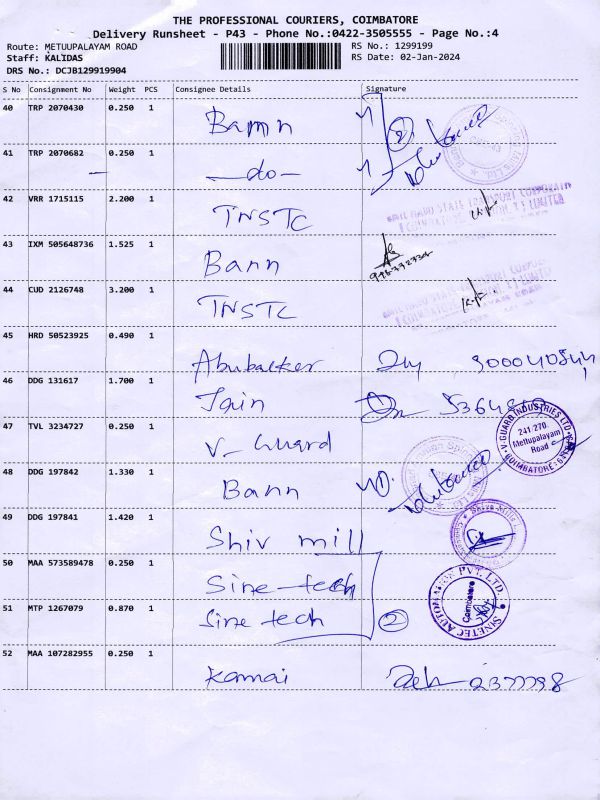 THE PROFESSIONAL COURIERS, COIMBATORE
Delivery Runsheet - P43 - Phone No.:0422-3505555 - Page No.:4
Route: METUUPALAYAM ROAD RS No.: 1299199
Staff: KALIDAS RS Date: 02-Jan-2024
DRS No.: DCJB129919904
S No Consignment No Weight PCS Consignee Details Signature
40 TRP 2070430 0.250 1 Bamn
41 TRP 2070682 0.250 1 -do-
42 VRR 1715115 2.200 1 TNSTC
43 IXM 505648736 1.525 1 Bann
44 CUD 2126748 3.200 1 TNSTC
45 HRD 50523925 0.490 1 Abubacker
46 DDG 131617 1.700 1 Jain
47 TVL 3234727 0.250 1 V-Guard
V-GUARD INDUSTRIES LTD
241/270
Mettupalayam
Road
COIMBATORE
48 DDG 197842 1.330 1 Bann
49 DDG 197841 1.420 1 Shiv mill
50 MAA 573589478 0.250 1 Sine-tech
51 MTP 1267079 0.870 1 Sine tech 2
SINETEC AUTOMATION PVT. LTD.
Coimbatore
52 MAA 107282955 0.250 1 Kamai